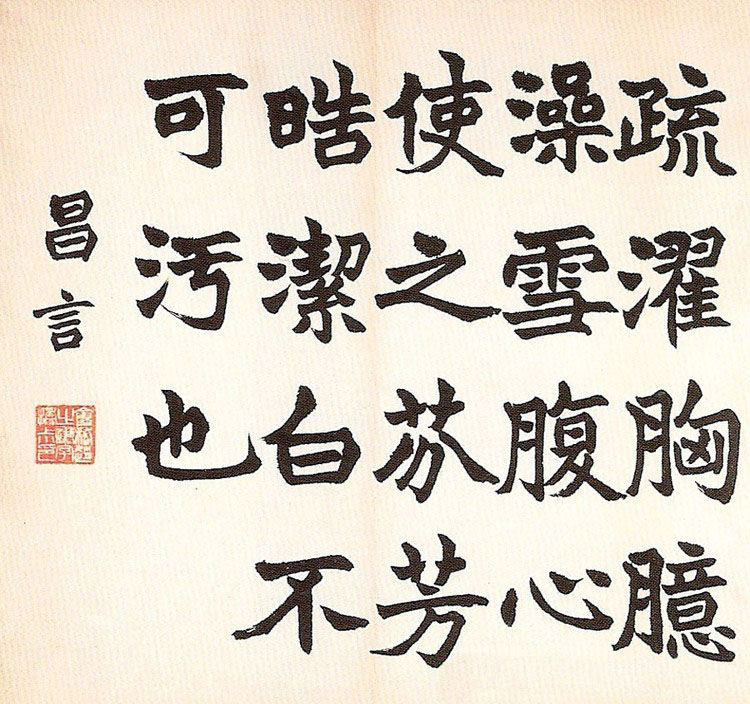 疏濯胸臆
澡雪腹心
使之芬芳
晧潔白不
可污也
昌言